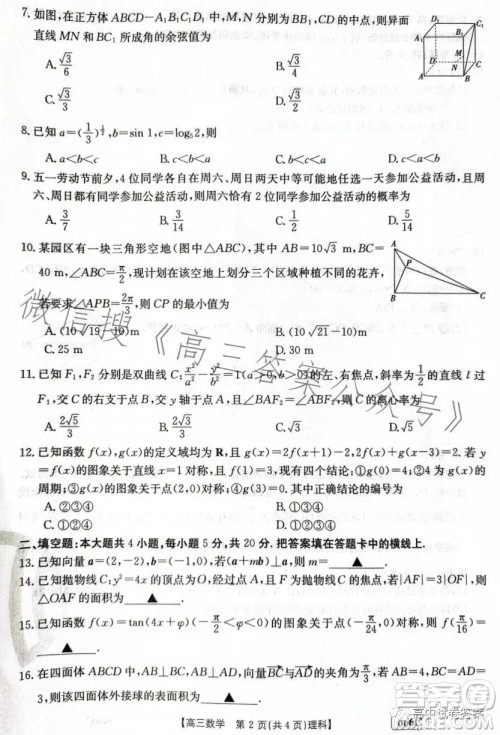 7. 如图,在正方体 ABCD－A₁B₁C₁D₁ 中,M,N 分别为 BB₁,CD 的中点,则异面
直线 MN 和 BC₁ 所成角的余弦值为
A. √3/6 B. √3/4
C. √3/3 D. √3/2
8. 已知 a=(1/3)^(1/3),b=sin 1,c=log₅2,则
A. a<b<c B. c<b<a C. b<c<a D. c<a<b
9. 五一劳动节前夕,4 位同学各自在周六、周日两天中等可能地任选一天参加公益活动,则周
六、周日都有同学参加公益活动,则恰有 2 位同学参加公益活动的概率为
A. 3/7 B. 3/14 C. 1/2 D. 5/14
10. 某园区有一块三角形空地(图中△ABC),其中 AB=10√3 m,BC=
40 m,∠ABC=π/2,现计划在该空地上划分三个区域种植不同的花卉,
若要求∠APB=2π/3,则 CP 的最小值为
A. (10√19－10)m B. (10√21－10)m
C. 25 m D. 30 m
11. 已知 F₁,F₂ 分别是双曲线 C:x²/a²－y²/b²=1(a>0,b>0)的左、右焦点,斜率为 1/2 的直线 l 过
F₁,交 C 的右支于点 B,交 y 轴于点 A,且∠BAF₂=∠ABF₂,则 C 的离心率为
A. 2√3/3 B. √5 C. √3 D. 2√5/3
12. 已知函数 f(x),g(x)的定义域均为 R,且 g(x)=2f(x+1)－2,g(x)=2f(x－3)+2. 若 y
=f(x)的图象关于直线 x=1 对称,且 f(1)=3,现有四个结论:①g(0)=4;②4 为 g(x)的周
期;③g(x)的图象关于点(2,0)对称;④g(3)=0. 其中结论正确的编号为
A. ②③④ B. ①③④
C. ①②③ D. ①②④
二、填空题:本大题共 4 小题,每小题 5 分,共 20 分. 把答案填在答题卡中的横线上.
13. 已知向量 a=(2,－2),b=(－1,0),若(a+mb)⊥a,则 m=▲.
14. 已知抛物线 C:y²=4x 的顶点为 O,经过点 A,且 F 为抛物线 C 的焦点,若|AF|=3|OF|,则
△OAF 的面积为 ▲.
15. 已知函数 f(x)=tan(4x+φ)(－π/2<φ<0)的图象关于点(－π/24,0)对称,则 f(π/16)=
▲.
16. 在四面体 ABCD 中,AB⊥BC,AB⊥AD,向量BC与AD的夹角为π/3,若 AB=4,BC=AD=
3,则该四面体外接球的表面积为 ▲.
【高三数学 第 2 页(共 4 页)理科】
微信搜《高三答案公众号》
A₁ C₁ M D N A B
A P B C